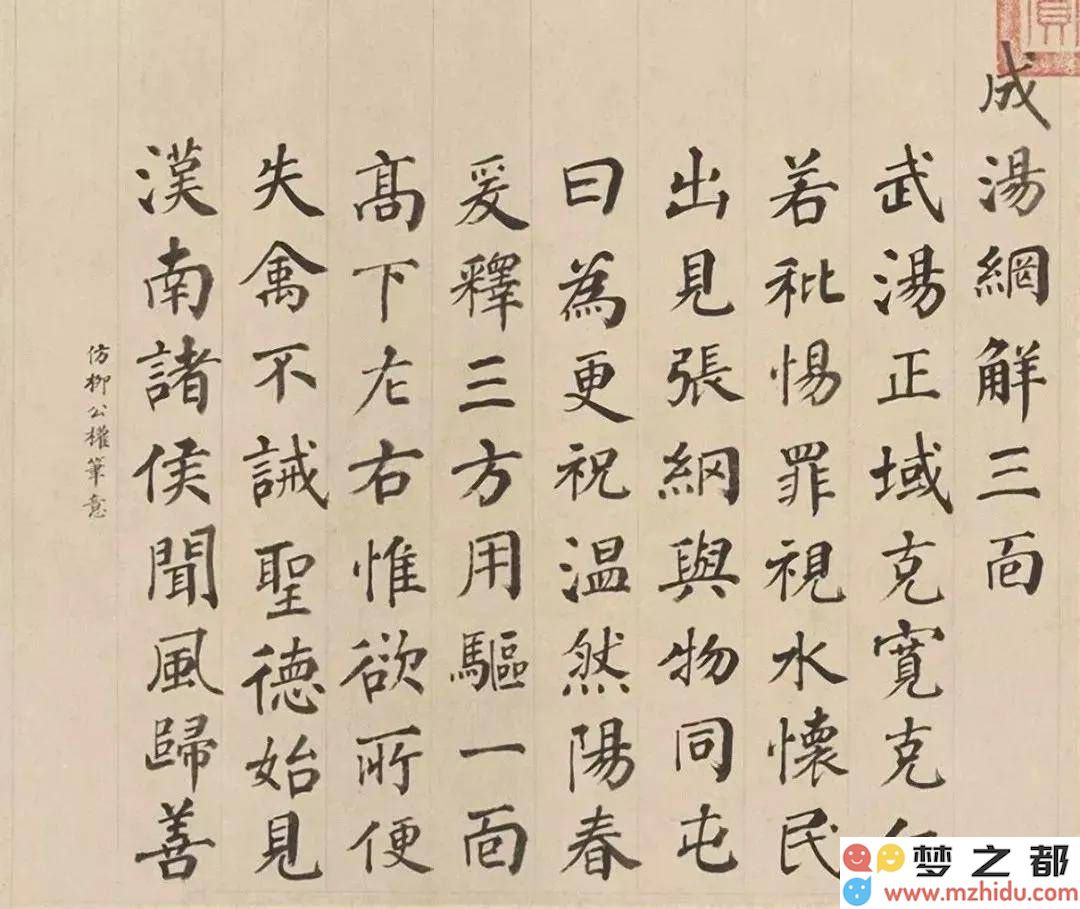 成湯網解三面
武湯正域克寬克
若秕惕罪視水懷民
出見張網與物同屯
曰為更祝温然陽春
爰釋三方用驅一面
髙下左右惟欲所便
失禽不誡聖德始見
漢南諸侯聞風歸善
仿柳公權筆意
梦之都
www.mzhidu.com